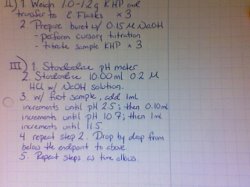 II) 1. Weigh 1.0-1.2g KHP and
transfer to E Flasks × 3
2. Prepare buret w/ 0.15 M NaOH
- perform cursory titration
- titrate sample KHP × 3
III) 1. Standardize pH meter
2. Standardize 10.00 ml 0.2 M
HCl w/ NaOH solution.
3. w/ first sample, add 1ml
increments until pH 2.5; then 0.10ml
increments until pH 10.7; then 1ml
increments until 11.5
4. repeat step 2. Drop by drop from
below the endpoint to above.
5. Repeat steps as time allows.